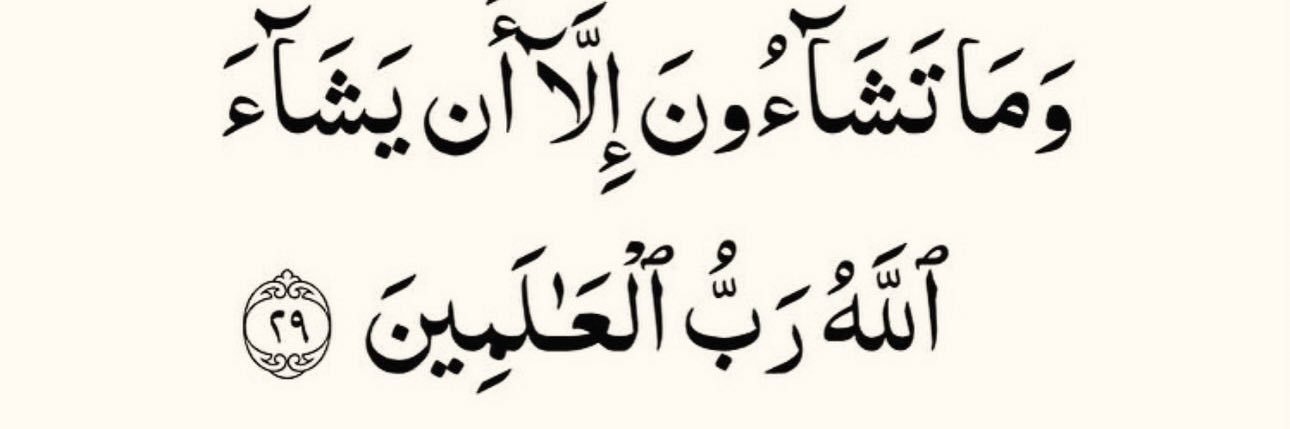 وَمَا تَشَآءُونَ إِلَّآ أَن يَشَآءَ
ٱللَّهُ رَبُّ ٱلْعَـٰلَمِينَ ٢٩